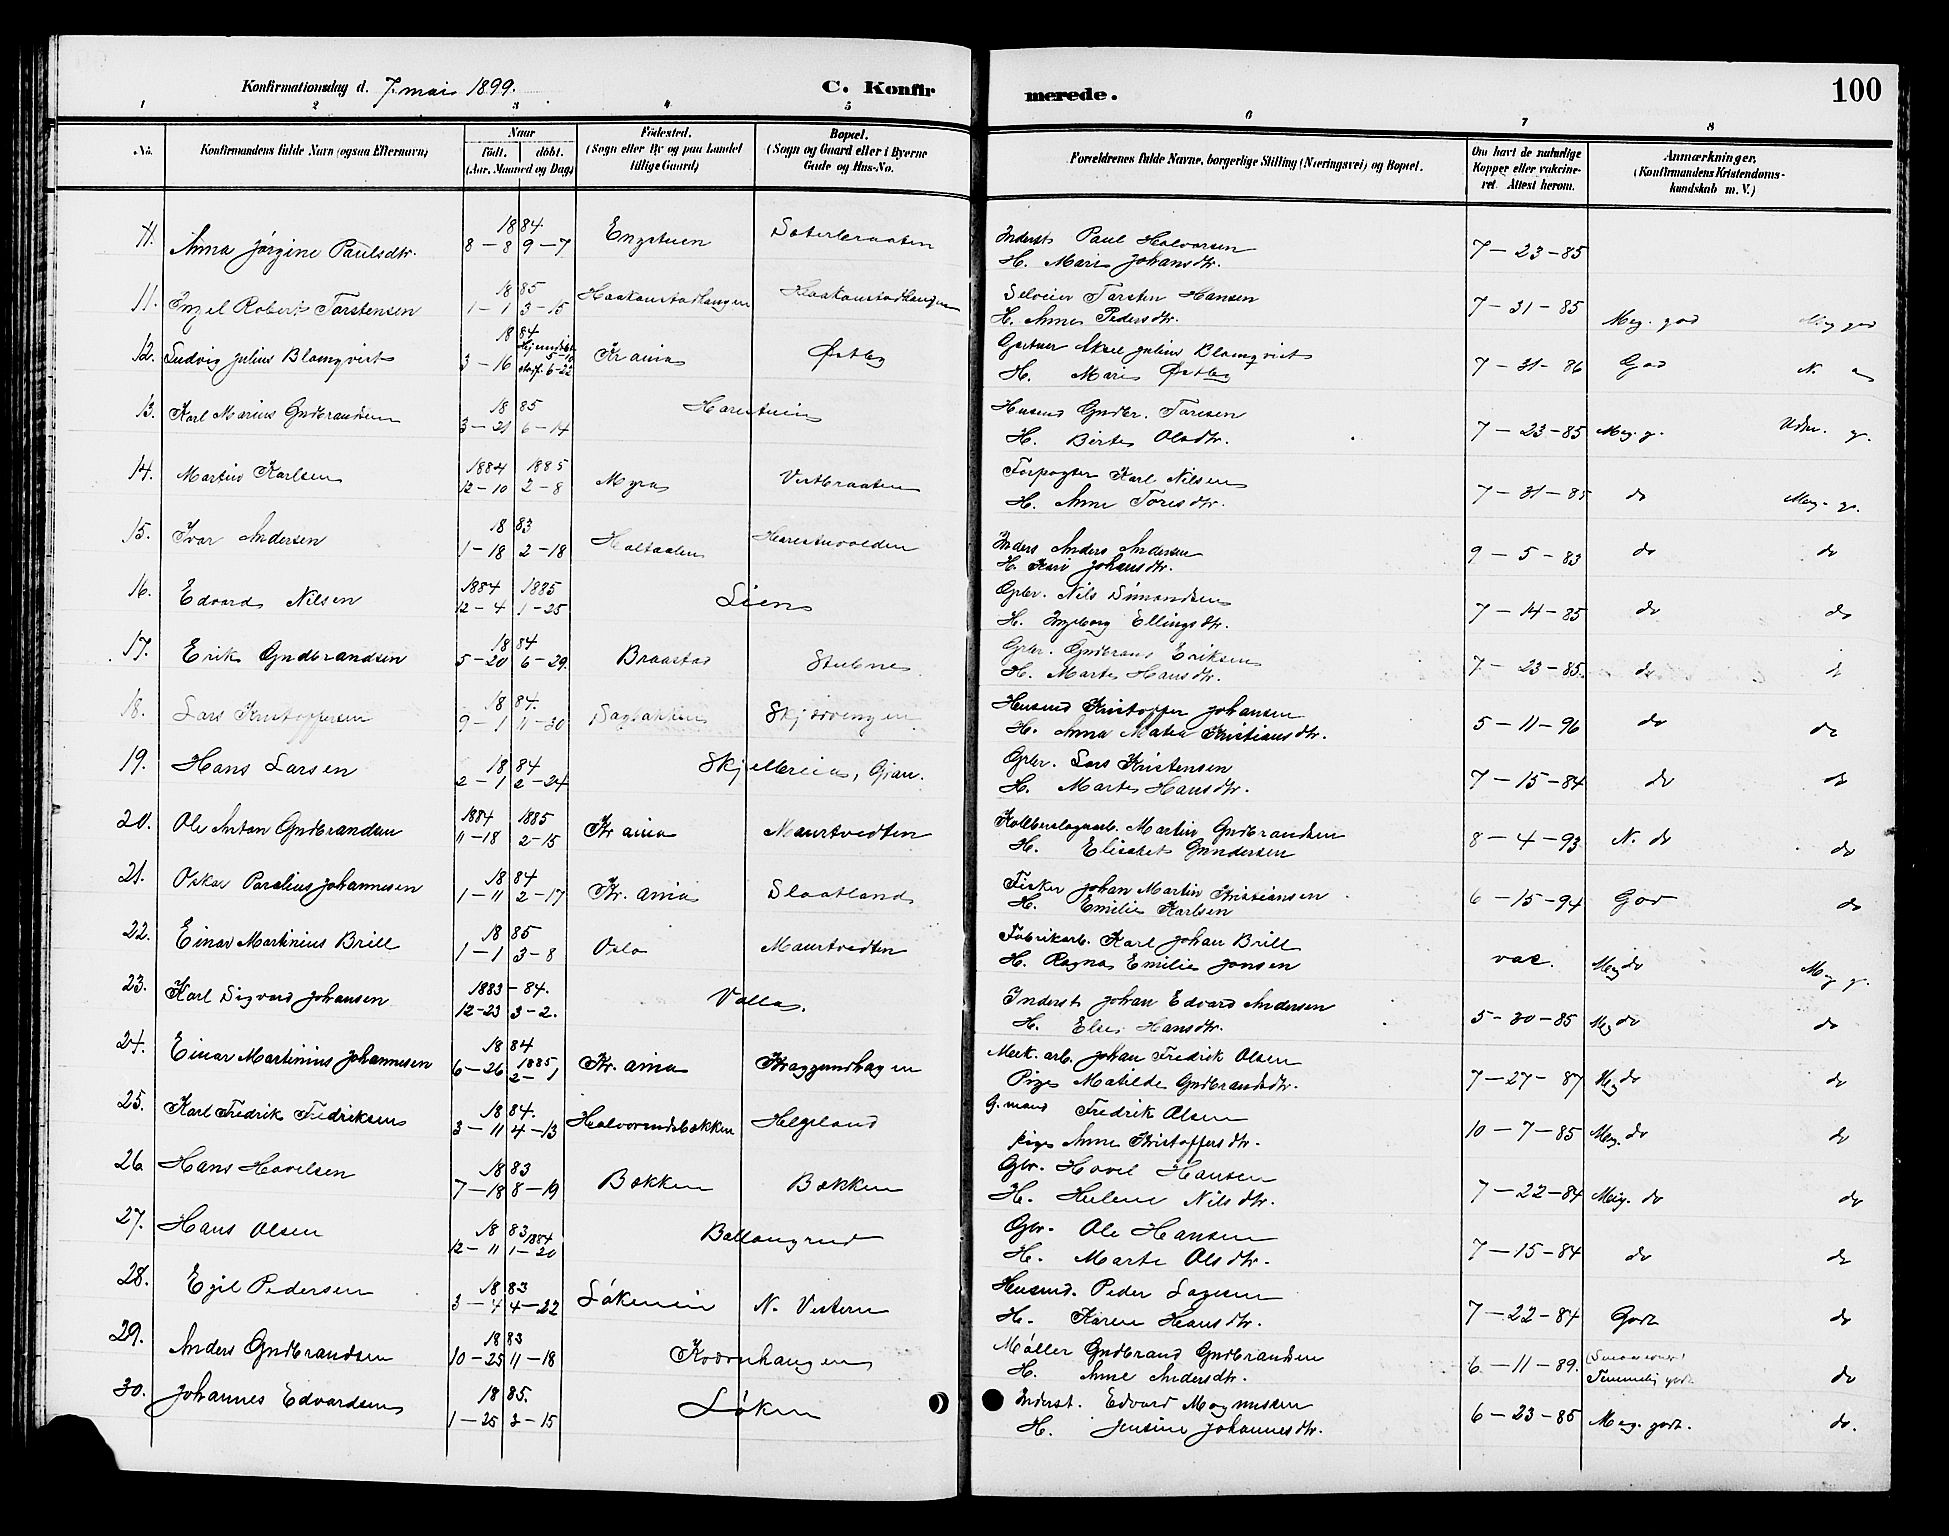 Konfirmationsdag d. 7. mai 1899.
C. Konfirmerede.
100
1 2 3 4 5 6 7 8
No. Konfirmandens fulde Navn (ogsaa Efternavn) Naar Födt. döbt. (Aar, Maaned og Dag) Födested. (Sogn eller By og paa Landet tillige Gaard) Bopæl. (Sogn og Gaard eller i Byerne Gade og Hus-No. Forældrenes fulde Navne, borgerlige Stilling (Næringsvei) og Bopæl. Om havt de naturlige Kopper eller vakcineret. Attest herom. Anmærkninger, (Konfirmandens Kristendomskundskab m. V.)
11. Anna Jørgine Paulsdtr. 1884 8-8 9-7 Engstuen Sæterbraaten Inderst Paul Halvorsen H. Mari Johansdtr. 7-23-85
11. Ingel Robert Torstensen 1885 1-1 3-15 Haakonstadhaugen Haakonstadhaugen Selveier Torsten Hansen H. Anne Pedersdtr. 7-31-85 Meg. god Meg god
12. Ludvig Julius Blomqvist 1884 3-16 Hjemmedøbt 5-10 stadf. 6-22 Kr.ania Østby Gartner Aksel Julius Blomqvist H. Marie Østby 7-31-86 God N.
13. Karl Marius Gudbrandsen 1885 3-21 6-14 Harestuen Husmd Gudbr. Toresen H. Berte Olsdtr. 7-23-85 Meg. g. Udm. g.
14. Martin Karlsen 1884 1885 12-10 2-8 Myra Vestbraaten Forpagter Karl Nilsen H. Anne Toresdtr. 7-31-85 do Meg. g.
15. Ivar Andersen 1883 1-18 2-18 Holtaalen Harestuvolden Inders Anders Andersen H. Kari Johansdtr. 9-5-83 do do
16. Edvard Nilsen 1884 1885 12-4 1-25 Lien Gbr. Nils Simondsen H. Ingeborg Ellingsdtr. 7-14-85 do do
17. Erik Gudbrandsen 1884 5-20 6-29. Braastad Stubne Gbr. Gudbrand Eriksen H. Marte Hansdtr. 7-23-85. do d
18. Lars Kristoffersen 1884. 9-1 11-30 Sagbakken Skjervengen Husmd Kristoffer Johansen H. Anna Matea Kristiansdtr. 5-11-96 do do
19. Hans Larsen 1884 2-1 2-24 Skjelbreia, Gran. Gbr. Lars Kristensen H. Marte Hansdtr. 7-15-84 do do
20. Ole Anton Gudbrandsen 1884 1885 11-18 2-15 Kr ania Maurtvedten Martin Gudbrandsen H. Elisabet Gundersen 8-4-93 N. do do
21. Oskar Paralius Johannesen 1884 1-11 2-17 Kr. ania Slaatland Fisker Johan Martin Kristiansen H. Emilie Karlsen 6-15-94 God do
22. Einar Martinius Brill 1885 1-1 3-8 Oslo Maurtvedten Fabrikarb. Karl Johan Brill H. Ragna Emilie Jonsen vac. Meg do Meg g.
23. Karl Sigvard Johansen 1883-84. 12-23 3-2. Volla. Inderst Johan Edvard Andersen H. Else Hansdtr. 5-30-85 Meg do do
24. Einar Martinius Johannesen 1884 6-26 1885 2-1 Kr. ania Kraggerudhagen Mek. arb. Johan Fredrik Olsen Pige Matilde Gudbrandsdtr. 7-27-87 Meg do do
25. Karl Fredrik Fredriksen 1884. 3-11 4-13 Halvorsrudsbakken Helgeland G. mand Fredrik Olsen pige Anne Kristoffersdtr. 10-7-85 Meg. do do
26 Hans Hovelsen 1883 7-18 8-19 Bækken Bækken Gbr. Hovel Hansen H. Helene Nilsdtr. 7-22-84 Meg. do do
27. Hans Olsen 1883 12-11 1884 1-20 Ballangrud Gbr. Ole Hansen H. Marte Olsdtr. 7-15-84 do do
28. Egil Pedersen 1883 3-4 4-22 Løkenein N. Vestern Husmd. Peder Lagesen H. Karen Hansdtr. 7-22-84 Godt do
29. Anders Gudbrandsen 1883 10-25 11-18 Kværnhaugen Møller Gudbrand Gudbrandsen H. Anne Andersdtr. 6-11-89. Temmelig godt do
30. Johannes Edvardsen 1885. 1-25 3-15 Løken Inderst. Edvard Magnussen H. Jensine Johannesdtr. 6-23-85 Meg. godt. do.